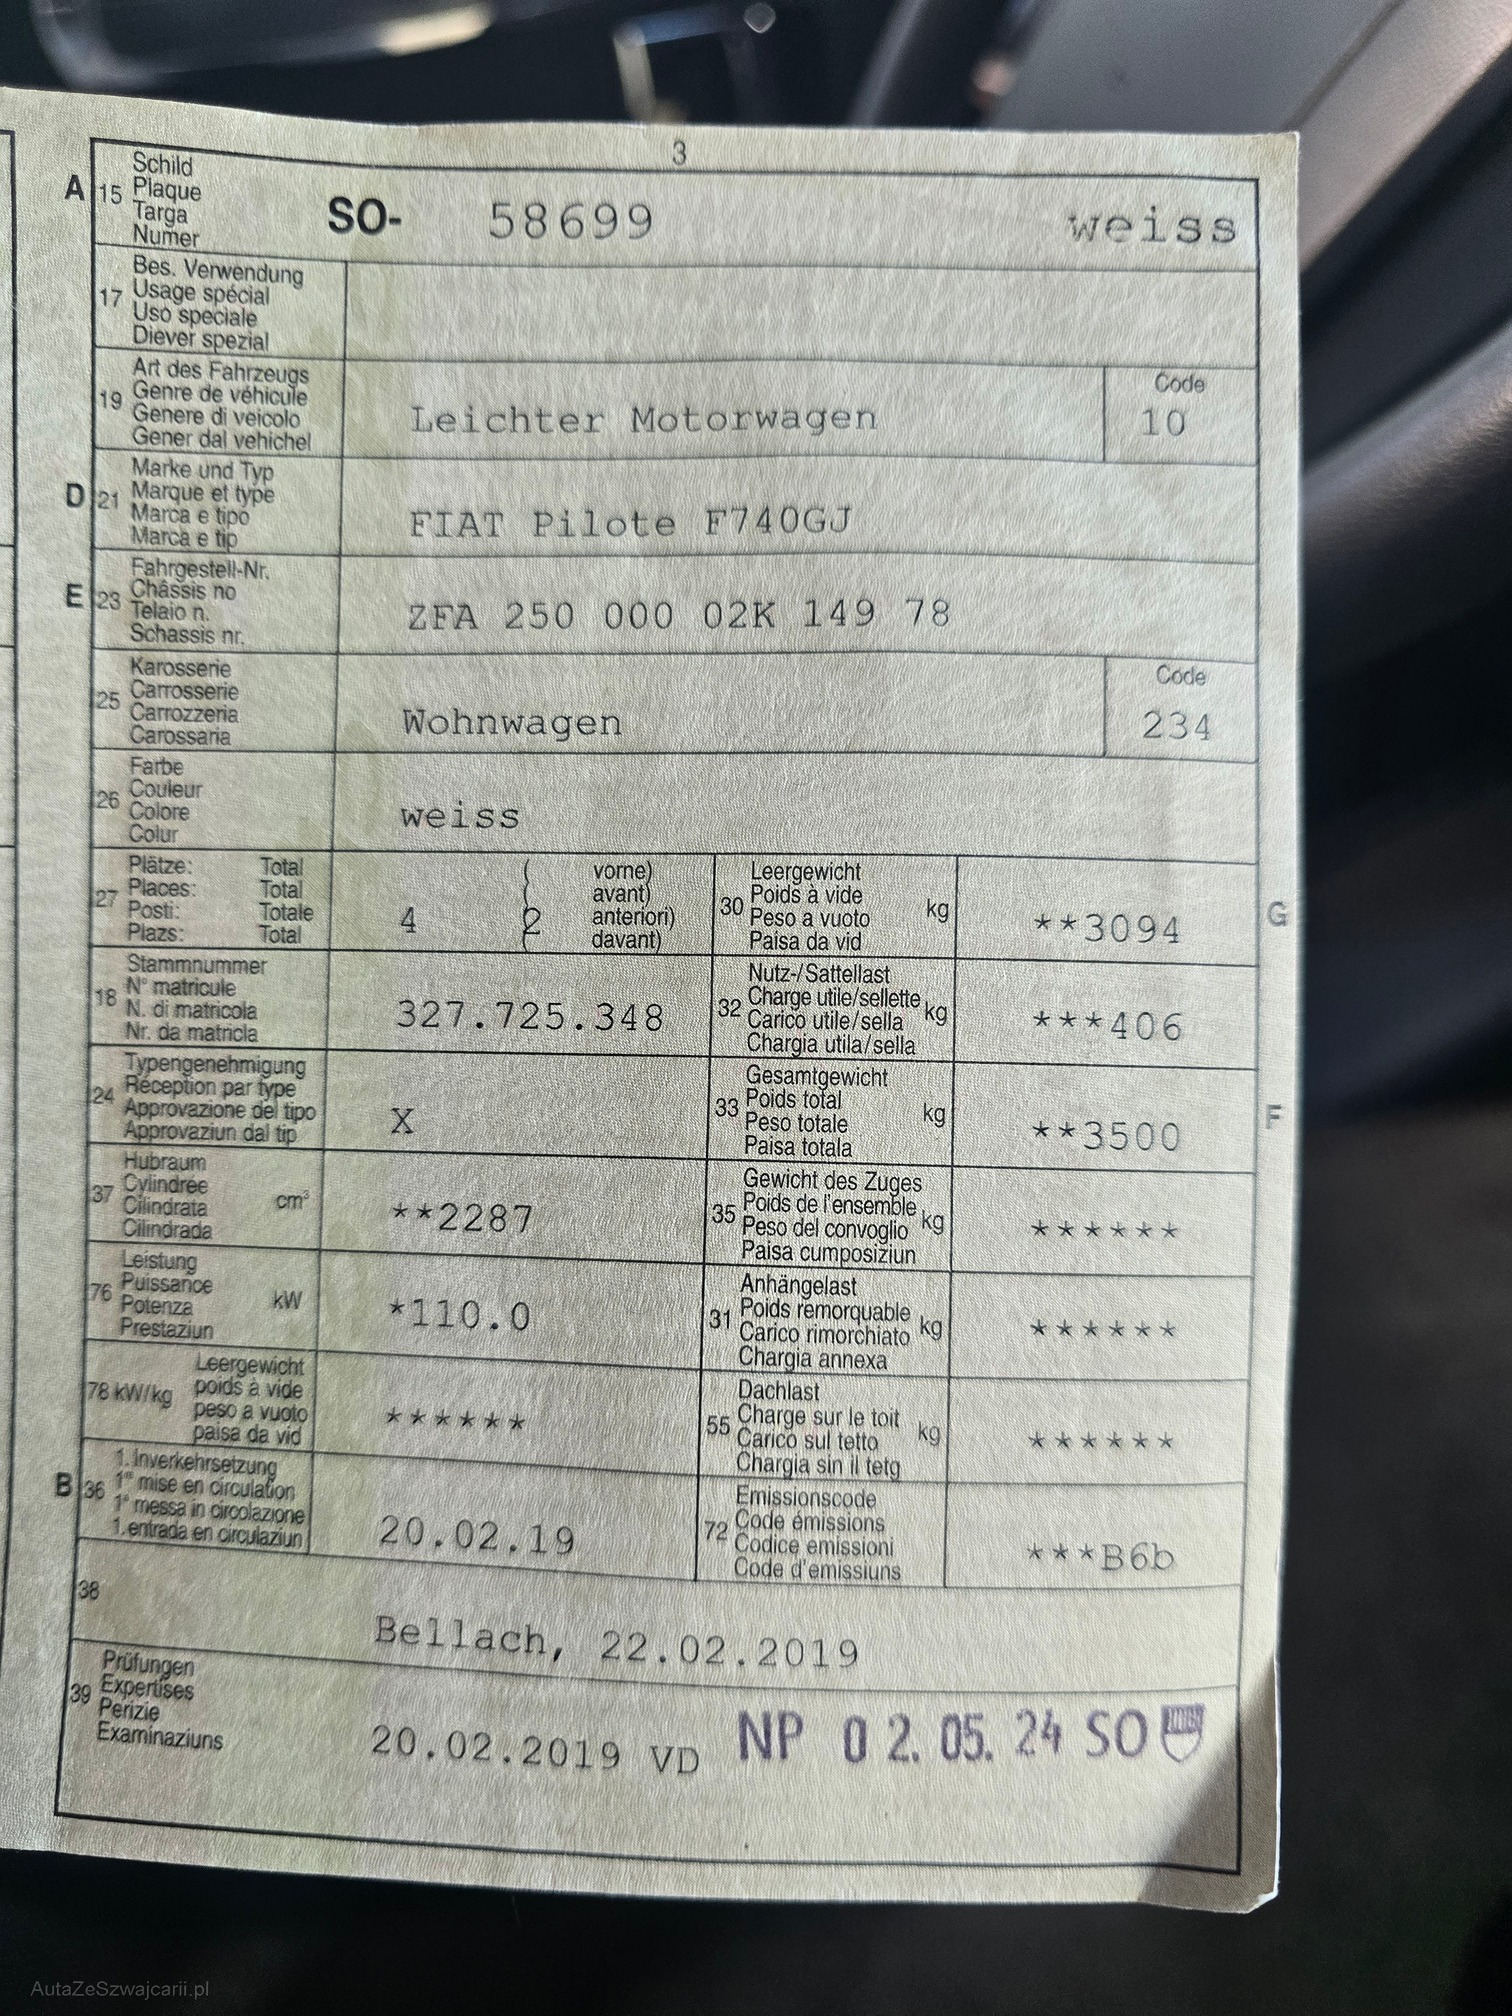 3
A 15 Schild
Plaque
Targa
Numer
SO- 58699 weiss
17 Bes. Verwendung
Usage spécial
Uso speciale
Diever spezial
19 Art des Fahrzeugs
Genre de véhicule
Genere di veicolo
Gener dal vehichel
Leichter Motorwagen
Code
10
D 21 Marke und Typ
Marque et type
Marca e tipo
Marca e tip
FIAT Pilote F740GJ
E 23 Fahrgestell-Nr.
Châssis no
Telaio n.
Schassis nr.
ZFA 250 000 02K 149 78
25 Karosserie
Carrosserie
Carrozzeria
Carossaria
Wohnwagen
Code
234
26 Farbe
Couleur
Colore
Colur
weiss
27 Plätze: Total
Places: Total
Posti: Totale
Plazs: Total
4 ( 2 vorne)
( avant)
( anteriori)
( davant)
30 Leergewicht
Poids à vide
Peso a vuoto
Paisa da vid
kg
**3094
G
18 Stammnummer
N° matricule
N. di matricola
Nr. da matricla
327.725.348
32 Nutz-/Sattellast
Charge utile/sellette
Carico utile/sella
Chargia utila/sella
kg
***406
24 Typengenehmigung
Réception par type
Approvazione del tipo
Approvaziun dal tip
X
33 Gesamtgewicht
Poids total
Peso totale
Paisa totala
kg
**3500
F
37 Hubraum
Cylindrée
Cilindrata
Cilindrada
cm³
**2287
35 Gewicht des Zuges
Poids de l'ensemble
Peso del convoglio
Paisa cumposiziun
kg
******
76 Leistung
Puissance
Potenza
Prestaziun
kW
*110.0
31 Anhängelast
Poids remorquable
Carico rimorchiato
Chargia annexa
kg
******
78 kW/kg Leergewicht
poids à vide
peso a vuoto
paisa da vid
******
55 Dachlast
Charge sur le toit
Carico sul tetto
Chargia sin il tetg
kg
******
B 36 1. Inverkehrsetzung
1re mise en circulation
1a messa in circolazione
1. entrada en circulaziun
20.02.19
72 Emissionscode
Code émissions
Codice emissioni
Code d'emissiuns
***B6b
38
Bellach, 22.02.2019
39 Prüfungen
Expertises
Perizie
Examinaziuns
20.02.2019 VD NP 02.05.24 SO
AutaZeSzwajcarii.pl